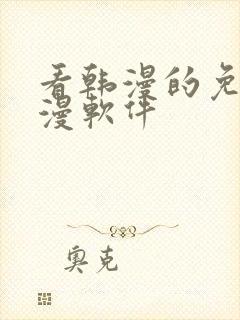 看韩漫的免
漫软件
奥克